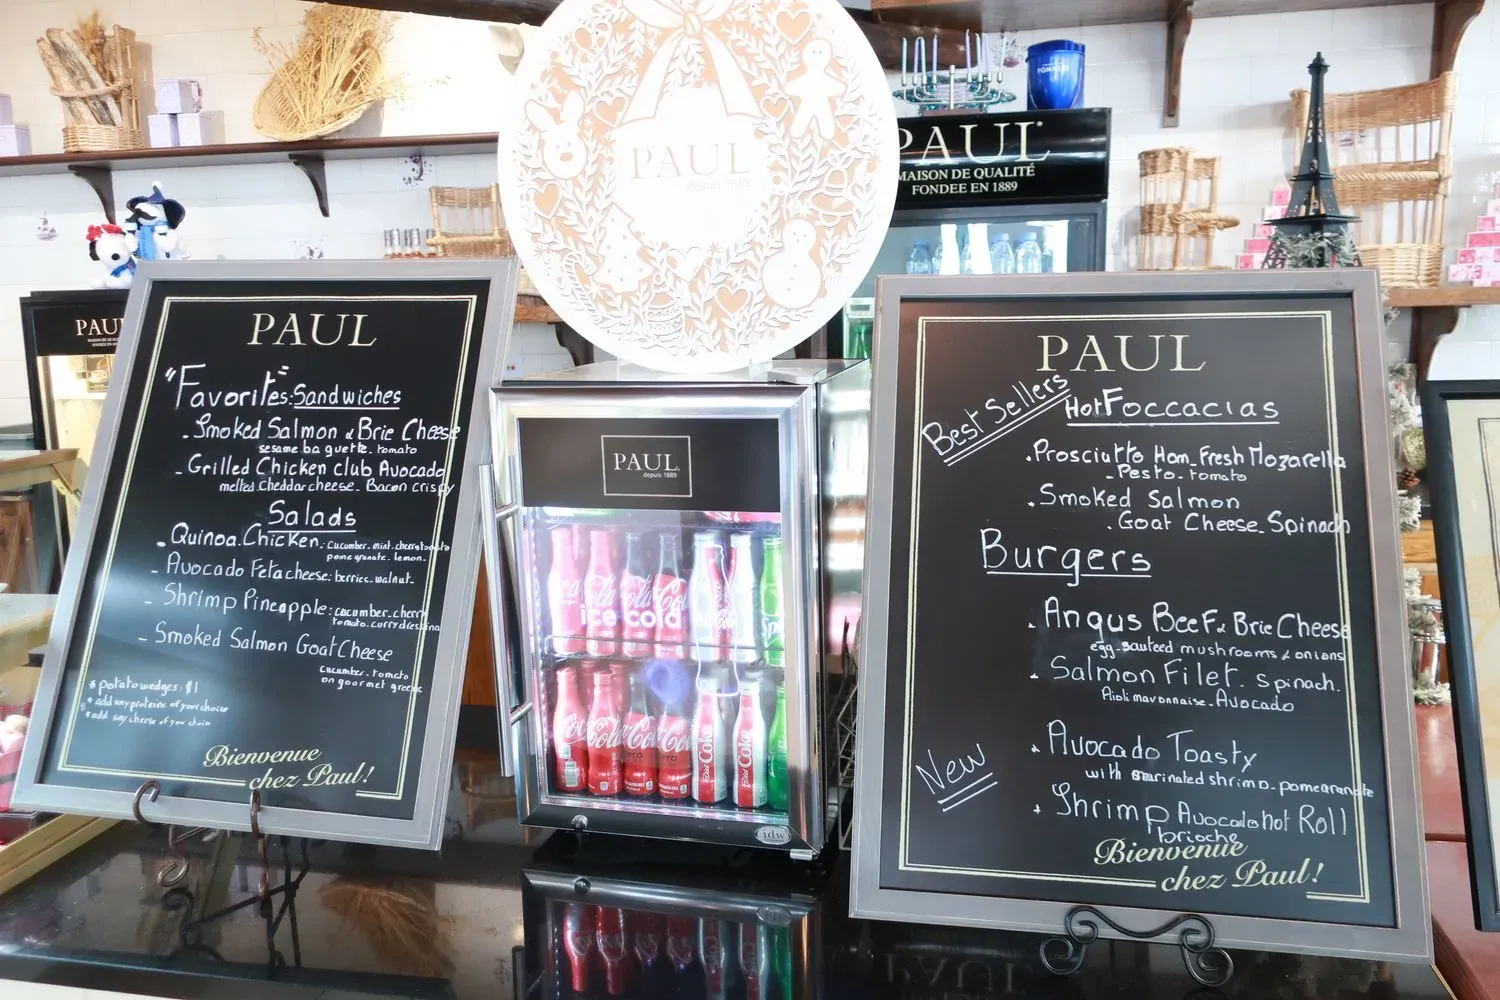 PAUL
"Favorites": Sandwiches
- Smoked Salmon & Brie Cheese
sesame baguette. tomato
- Grilled Chicken club Avocado
melted Cheddar cheese. Bacon crispy
Salads
- Quinoa. Chicken. cucumber. mint. cherry tomato
pomegranate. lemon.
- Avocado Feta cheese: berries. walnut.
- Shrimp Pineapple: cucumber. cherry
tomato. curry dressing
- Smoked Salmon Goat Cheese
cucumber. tomato
on gourmet greens
* potato wedges: $1
* add any proteine of your choice
* add any cheese of your choice
Bienvenue
chez Paul!
PAUL
depuis 1889
PAUL
MAISON DE QUALITÉ
FONDEE EN 1889
POMMERY
PAUL
PAUL
depuis 1889
ice cold
Coca-Cola
Diet Coke
idw
PAUL
Best Sellers
Hot Foccacias
. Prosciutto Ham. Fresh Mozarella
Pesto. tomato
. Smoked Salmon
. Goat Cheese. Spinach
Burgers
. Angus Beef & Brie Cheese
egg. sauteed mushrooms & onions
. Salmon Filet. spinach.
Aioli mayonnaise. Avocado
New
. Avocado Toasty
with marinated shrimp. pomegranate
. Shrimp Avocado hot Roll
brioche
Bienvenue
chez Paul!